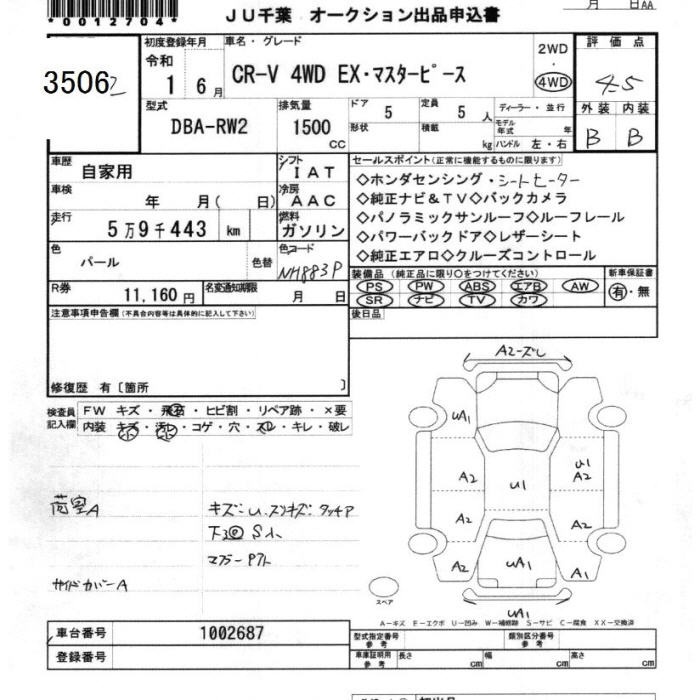 *0012704*
JU千葉 オークション出品申込書
月 日AA
35062
初度登録年月
令和
1 6月
車名・グレード
CR-V 4WD EX・マスターピース
2WD
・
4WD
評価点
4.5
外装 内装
B B
型式
DBA-RW2
排気量
1500
CC
ドア
5
定員
5
人
形状
積載
kg
ディーラー・並行
モデル
年式
年
ハンドル 左・右
車歴
自家用
シフト
IAT
車検
年 月( 日)
冷房
AAC
走行
5万9千443 km
燃料
ガソリン
色
パール
色替
色コード
NH883P
R券
11,160円
名変通知期限
月 日
セールスポイント(正常に機能するものに限ります)
◇ホンダセンシング・シートヒーター
◇純正ナビ&TV◇バックカメラ
◇パノラミックサンルーフ◇ルーフレール
◇パワーバックドア◇レザーシート
◇純正エアロ◇クルーズコントロール
装備品(純正品に限り○をつけてください)
PS PW ABS エアB AW
SR ナビ TV カワ
新車保証書
有・無
後日品
注意事項申告欄(不具合内容等は具体的に記入して下さい)
修復歴 有〔箇所 〕
検査員
記入欄
FW キズ・飛石・ヒビ割・リペア跡・×要
内装 キズ・汚レ・コゲ・穴・スレ・キレ・破レ
小 小
荷室A
キズ:U.スリキズ タッチア
下3 S小
マフラーPクト
サイドカバーA
A2-ズレ
UA1
A2
A2
A2
U1
UA1
U1
A2
A2
A1
UA1
スペア
A-キズ E-エクボ U-凹み W-補修跡 S-サビ C-腐食 XX-交換済
車台番号
1002687
登録番号
型式指定番号
参考
類別区分番号
参考
車庫証明用
参考
長さ
cm
幅
cm
高さ
cm